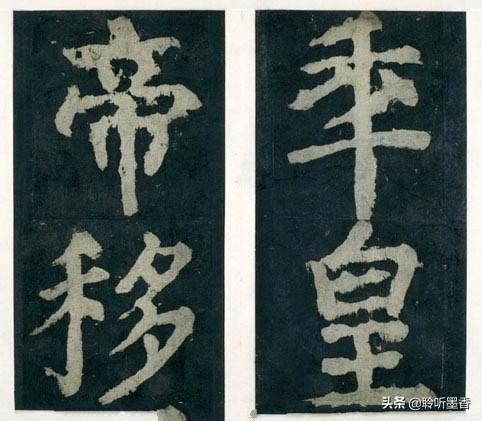 年皇
帝移
头条 @聆听墨香